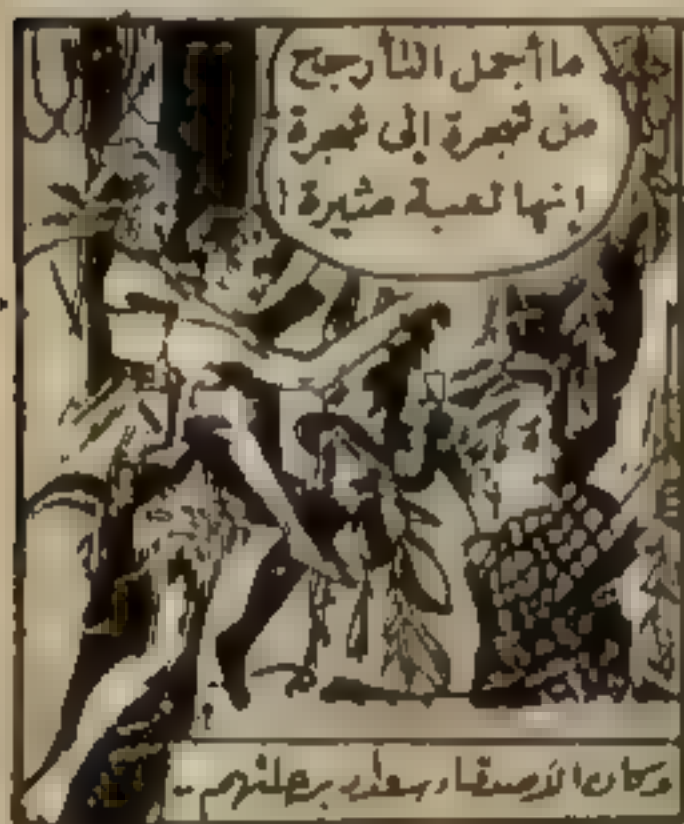 ما أجمل التأرجح
من شجرة إلى شجرة
إنها لعبة مثيرة !
وكان الأصدقاء سعداء برحلتهم ..